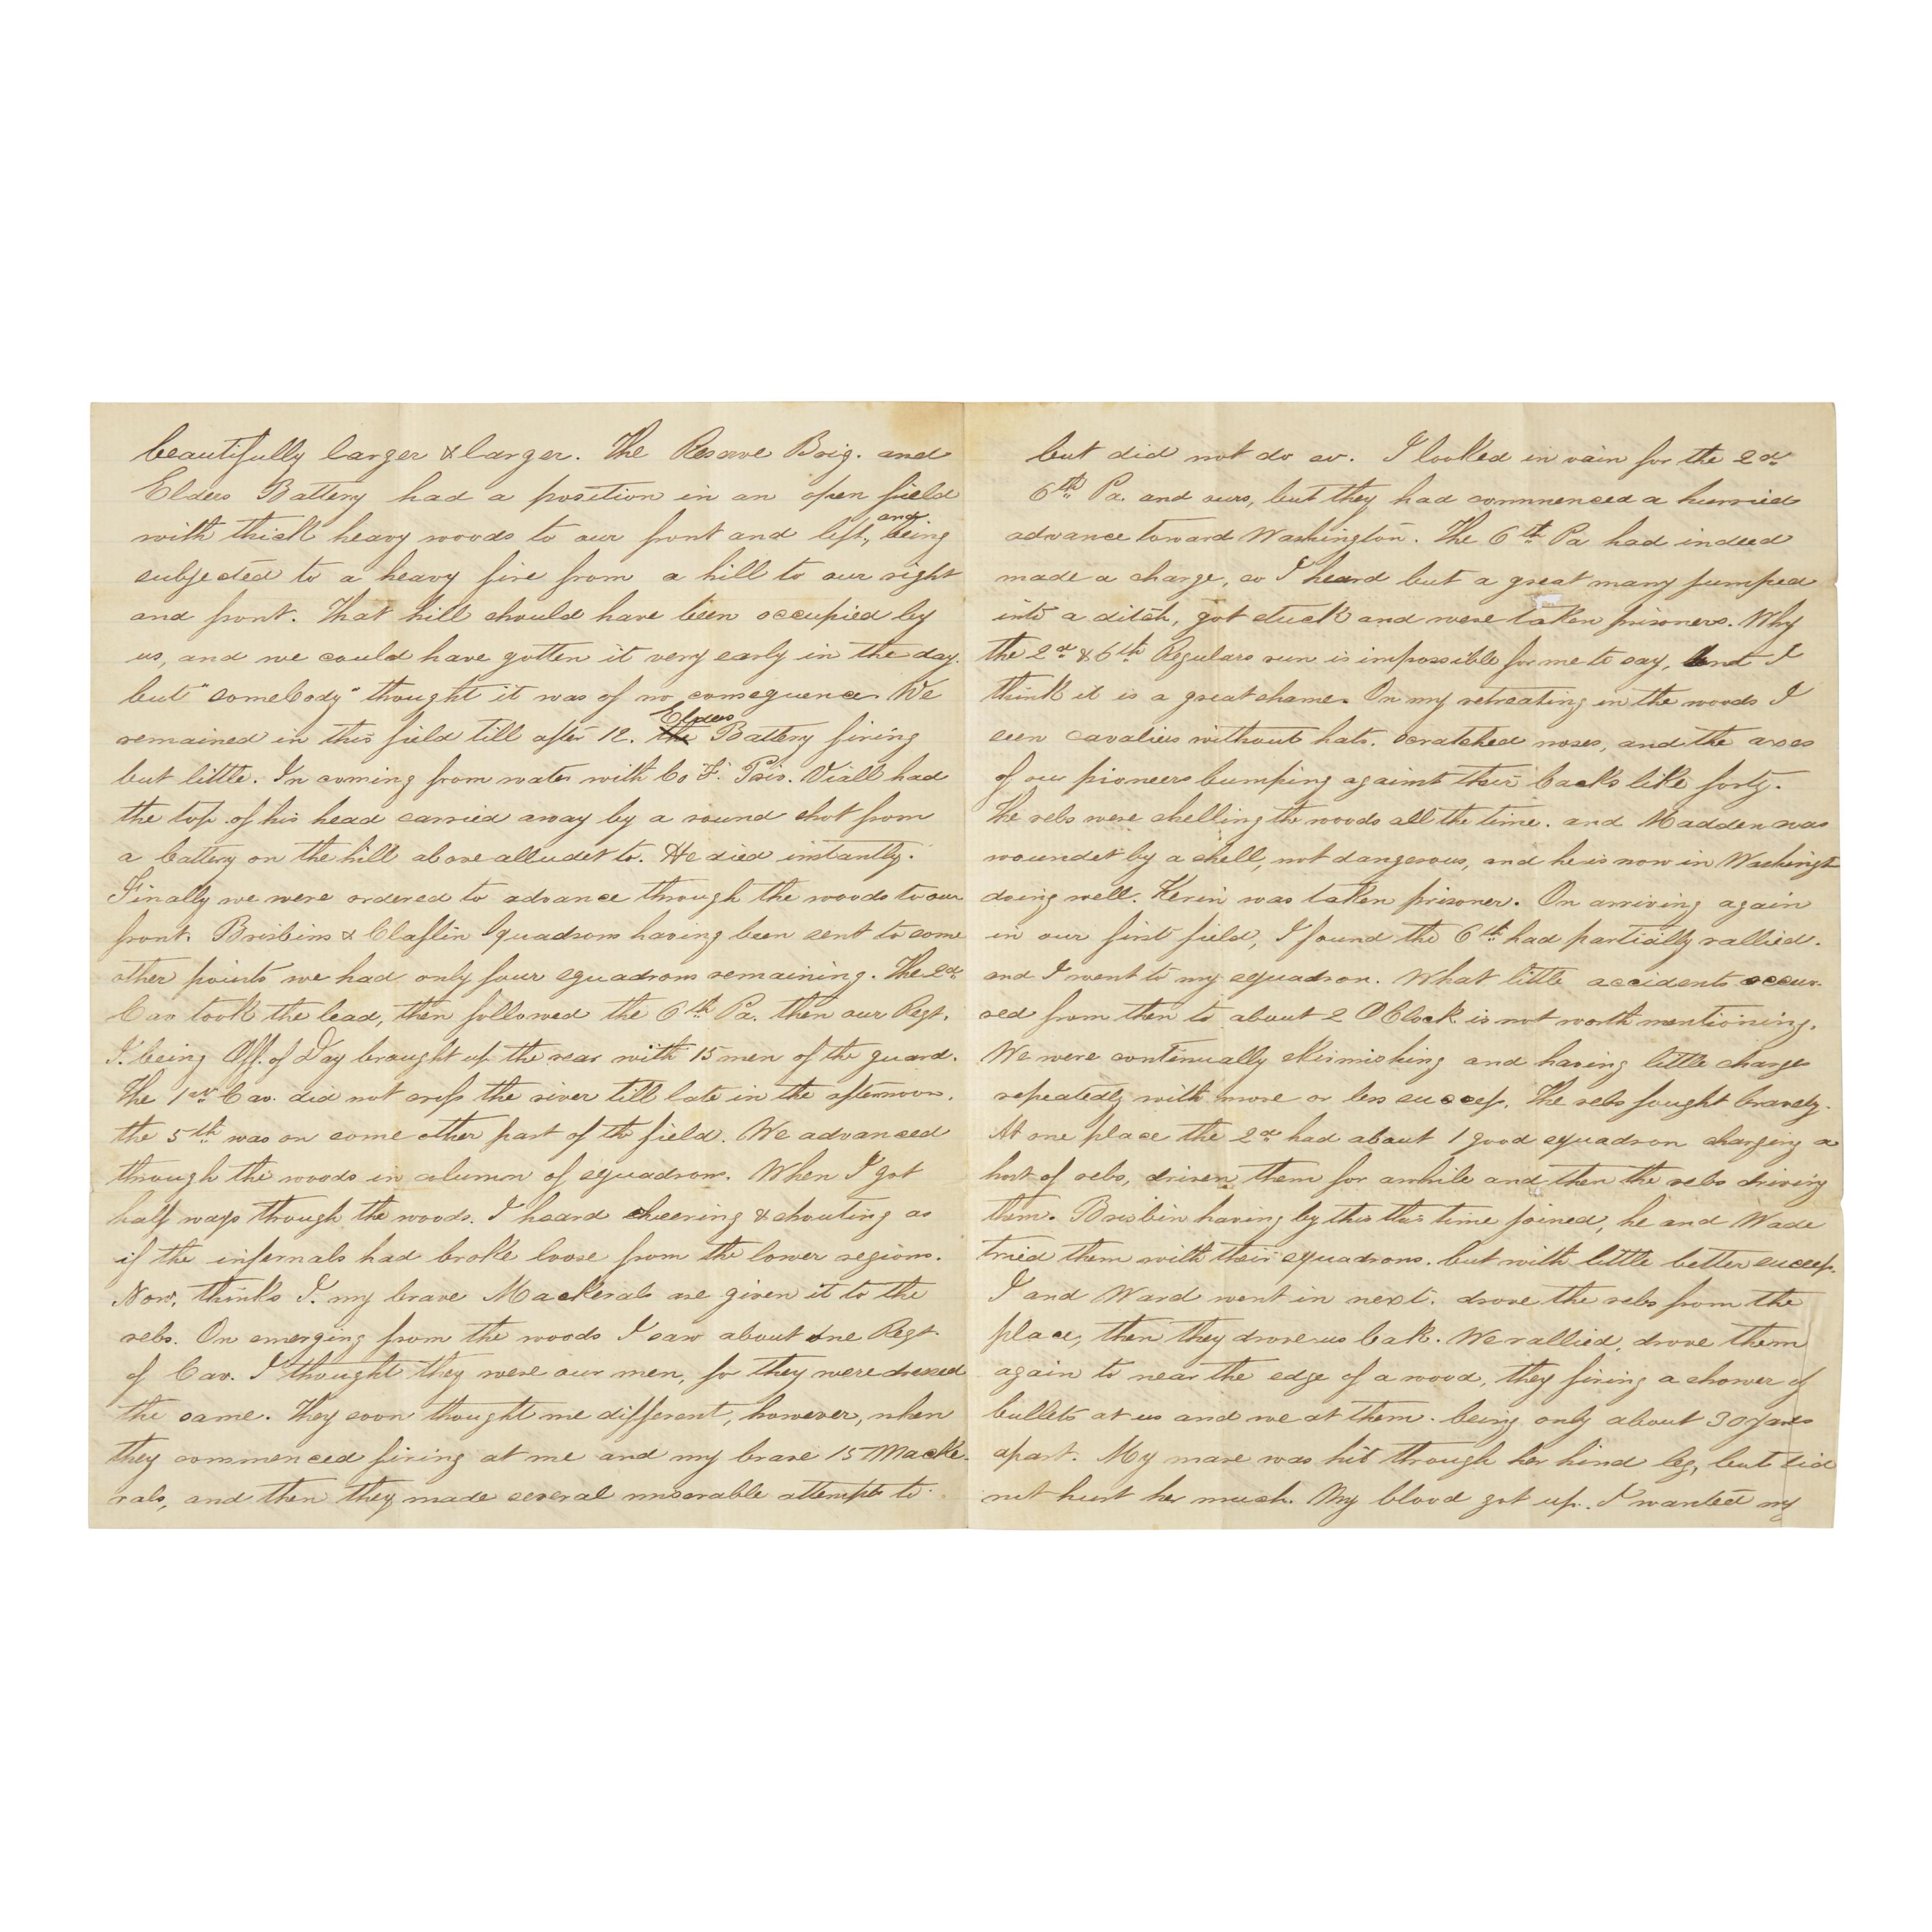 beautifully larger & larger. The Reserve Brig. and
Elders Battery had a position in an open field
with thick heavy woods to our front and left, and being
subjected to a heavy fire from a hill to our right
and front. That hill should have been occupied by
us, and we could have gotten it very early in the day.
but "somebody" thought it was of no consequence. We
remained in this field till after 12. the Elders Battery firing
but little. In coming from water with Co F. Priv. Viall had
the top of his head carried away by a round shot from
a battery on the hill above alludet to. He died instantly.
Finally we were ordered to advance through the woods to our
front. Brisbins & Claflin Squadrons having been sent to some
other points we had only four squadrons remaining. The 2d
Cav took the lead, then followed the 6th Pa. then our Regt.
I. being Off. of Day brought up the rear with 15 men of the guard.
The 1st Cav. did not cross the river till late in the afternoon.
the 5th was on some other part of the field. We advanced
through the woods in column of squadrons. When I got
half ways through the woods. I heard cheering & shouting as
if the infernals had broke loose from the lower regions.
Now, thinks I. my brave Mackerals are given it to the
rebs. On emerging from the woods I saw about one Regt.
of Cav. I thought they were our men, for they were dressed
the same. They soon thought me different, however, when
they commenced firing at me and my brave 15 Macke-
rals, and then they made several miserable attempts to
but did not do so. I looked in vain for the 2d
6th Pa. and ours, but they had commenced a hurried
advance toward Washington. The 6th Pa had indeed
made a charge, so I heard but a great many jumped
into a ditch, got stuck and were taken prisoners. Why
the 2d & 6th Regulars run is impossible for me to say, and I
think it is a great shame. On my retreating in the woods I
seen cavaliers without hats. scratched noses, and the axes
of our pioneers bumping against their backs like forty.
The rebs were shelling the woods all the time. and Madden was
woundet by a shell, not dangerous, and he is now in Washingt
doing well. Kerin was taken prisoner. On arriving again
in our first field, I found the 6th had partially rallied.
and I went to my squadron. What little accidents occur-
red from then to about 2 OClock is not worth mentioning.
We were continually skirmishing and having little charges
repeatedly with more or less success. The rebs fought bravely.
At one place the 2d had about 1 good squadron charging a
host of rebs, driven them for awhile and then the rebs driving
them. Brisbin having by this this time joined, he and Wade
tried them with their squadrons. but with little better success.
I and Ward went in next. drove the rebs from the
place, then they drove us bak. We rallied, drove them
again to near the edge of a wood, they firing a shower of
bullets at us and we at them. being only about 30 yards
apart. My mare was hit through her hind leg, but did
not hurt her much. My blood got up. I wanted my